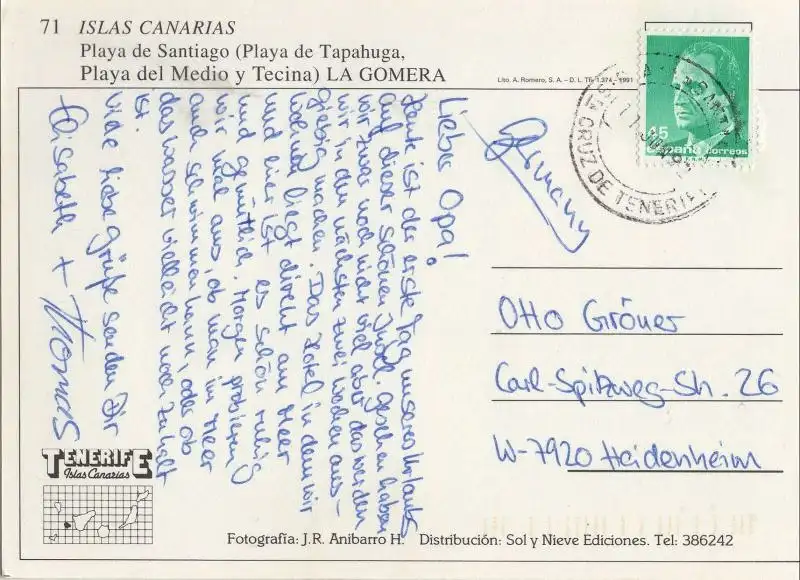 71 ISLAS CANARIAS
Playa de Santiago (Playa de Tapahuga,
Playa del Medio y Tecina) LA GOMERA
Lito. A. Romero, S. A. – D. L. TF. 1.374 – 1991
Lieber Opa!
Heute ist der erste Tag unseres Urlaubs
auf dieser schönen Insel. Gesehen haben
wir zwar noch nicht viel aber das werden
wir in den nächsten zwei Wochen aus-
giebig machen. Das Hotel in dem wir
wohnen liegt direkt am Meer
und hier ist es schön ruhig
und gemütlich. Morgen probieren
wir mal aus, ob man im Meer
auch schwimmen kann, oder ob
das Wasser vielleicht noch zu kalt
ist.
Viele liebe Grüße senden Dir
Elisabeth + Thomas
45
españa correos
STA CRUZ DE TENERIFE
Germany
Otto Gröner
Carl-Spitzweg-Str. 26
W-7920 Heidenheim
TENERIFE
Islas Canarias
Fotografía: J.R. Anibarro H. Distribución: Sol y Nieve Ediciones. Tel: 386242